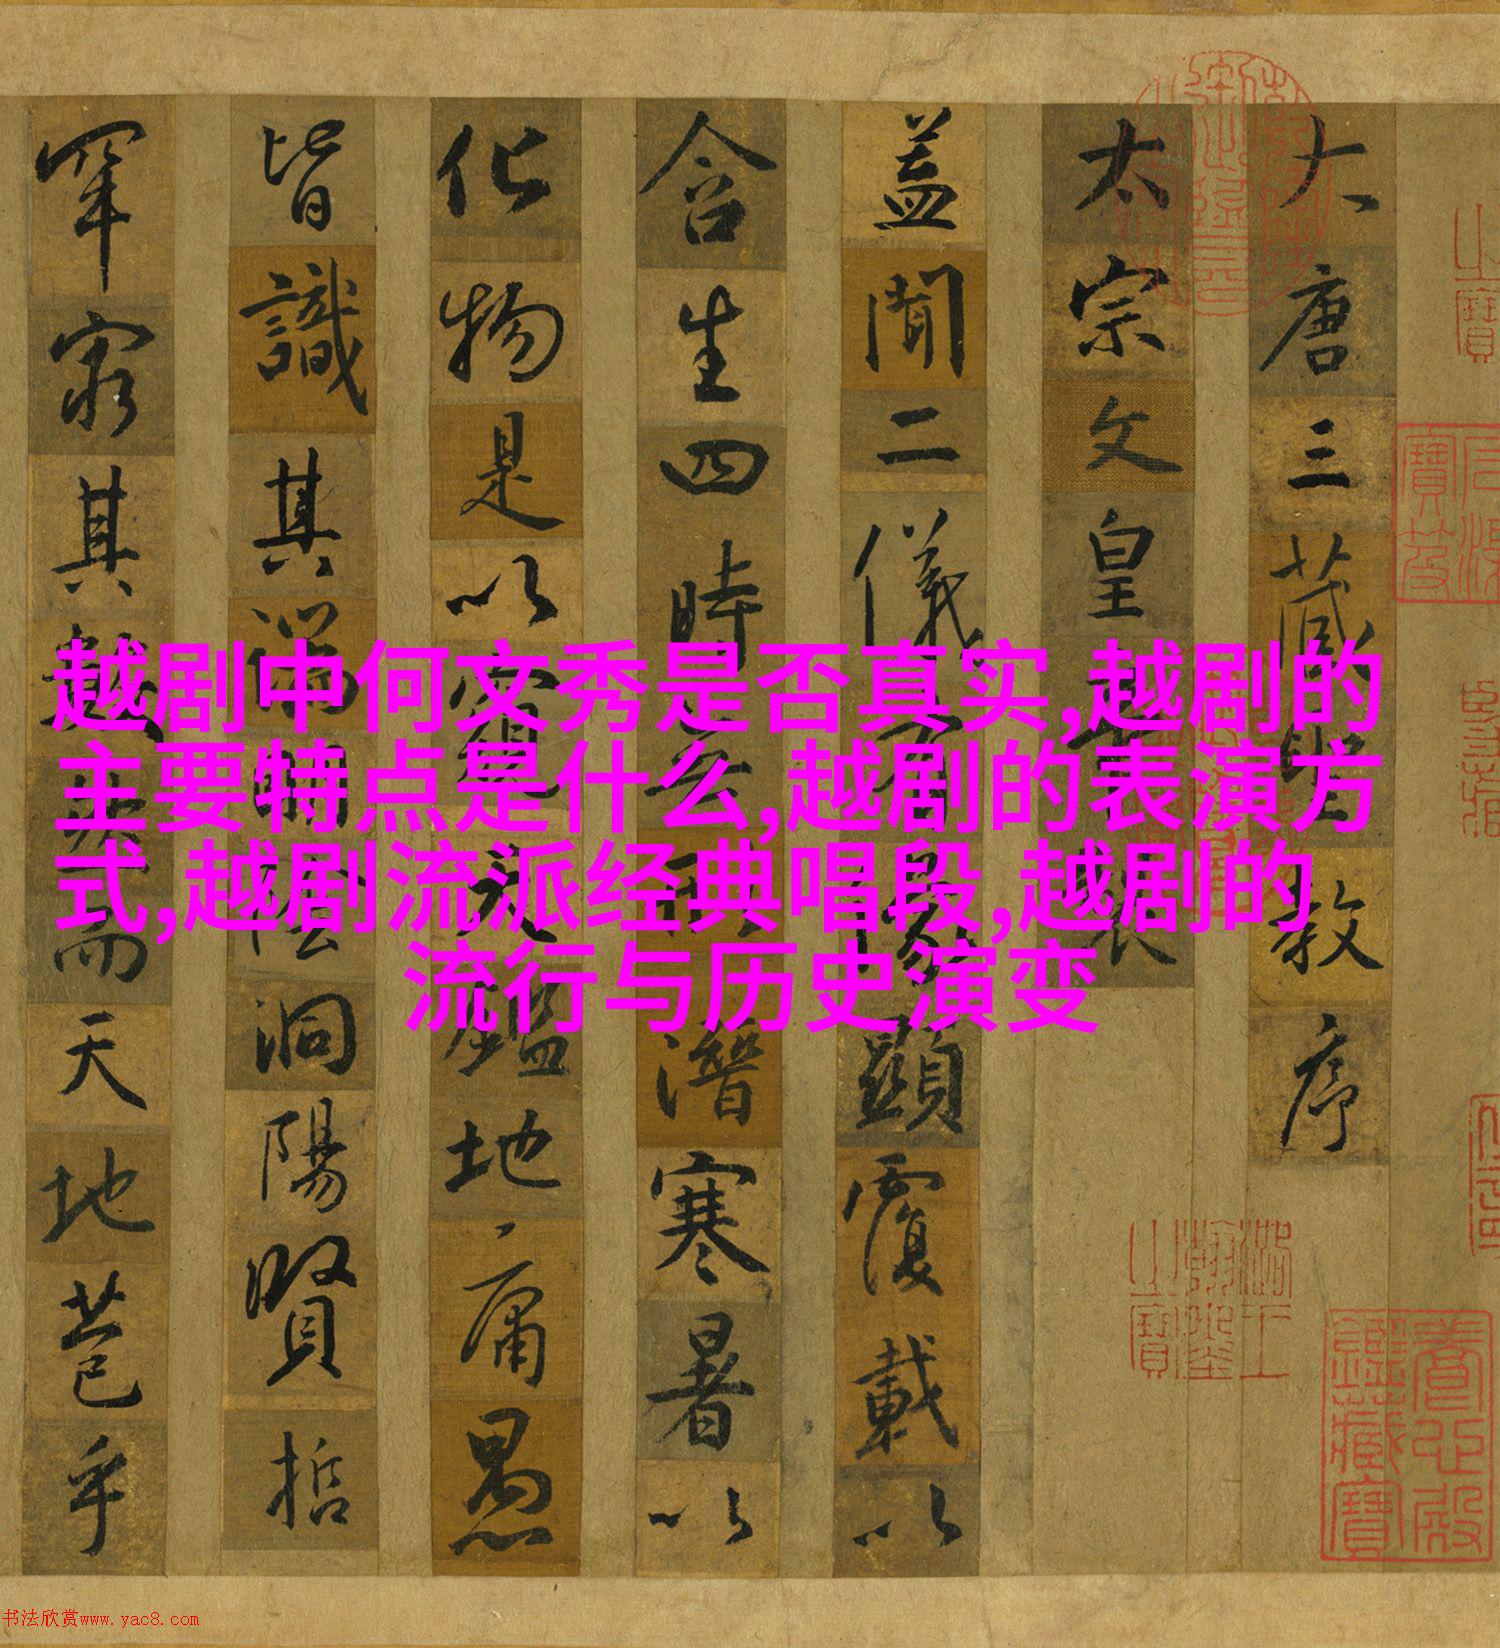 越剧中何文秀是否真实,越剧的
主要特点是什么,越剧的表演方
式,越剧流派经典唱段,越剧的
流行与历史演变
大唐三藏聖教序
太宗文皇帝製
蓋聞二儀有象顯覆載以
含生四時無形潛寒暑以
化物是以窺天鑑地庸愚
皆識其端明陰洞陽賢哲
罕窮其數然而天地苞乎
養心殿鑑藏寶
书法欣赏www.yac8.com